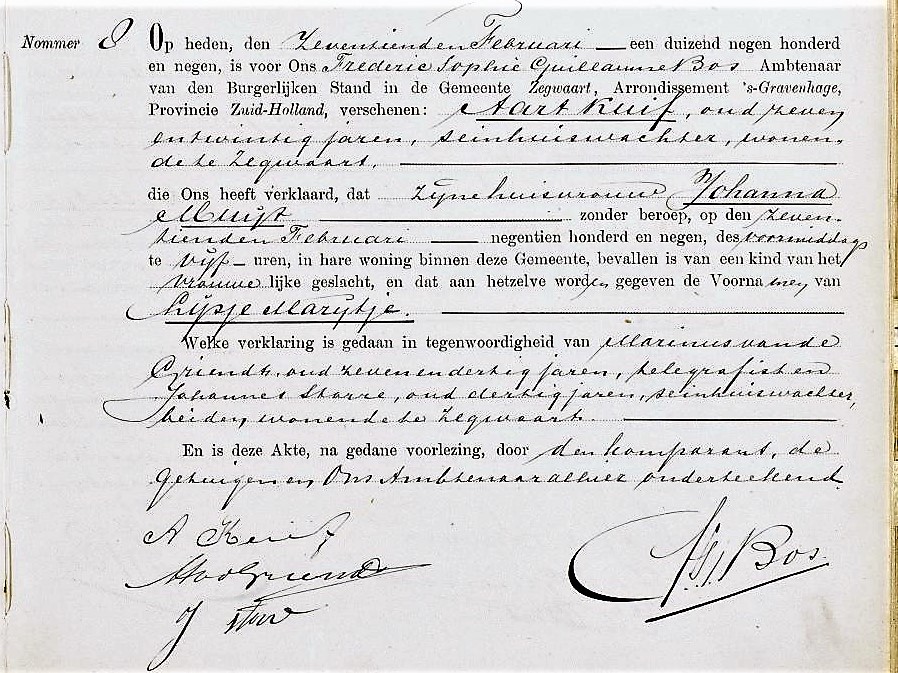 Nommer 8 Op heden, den Zeventienden Februari een duizend negen honderd
en negen, is voor Ons Frederic Sophie Guillaume Bos Ambtenaar
van den Burgerlijken Stand in de Gemeente Zegwaart, Arrondissement 's-Gravenhage,
Provincie Zuid-Holland, verschenen: Aart Kuif, oud zeven
entwintig jaren, seinhuiswachter, wonen-
de te Zegwaart.
die Ons heeft verklaard, dat zijne huisvrouw Johanna
Muijt zonder beroep, op den zeven-
tienden Februari negentien honderd en negen, des voormiddags
te vijf uren, in hare woning binnen deze Gemeente, bevallen is van een kind van het
vrouwelijke geslacht, en dat aan hetzelve worden gegeven de Voornamen van
Lijsje Marijtje.
Welke verklaring is gedaan in tegenwoordigheid van Marinus van de
Griendt, oud zevenendertig jaren, telegrafist en
Johannes Starre, oud dertig jaren, seinhuiswachter,
beiden wonende te Zegwaart.
En is deze Akte, na gedane voorlezing, door den komparant, de
getuigen en Ons Ambtenaar alhier onderteekend.
A Kuif
MvdGriendt
J
Bos